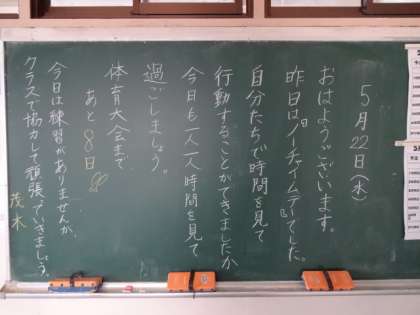 5月22日(水)
おはようございます。
昨日は『ノーチャイムデー』でした。
自分たちで時間を見て
行動することができましたか
今日も一人一人時間を見て
過ごしましょう。
体育大会まで
あと8日
今日は練習がありませんが、
クラスで協力して頑張っていきましょう。
茂木